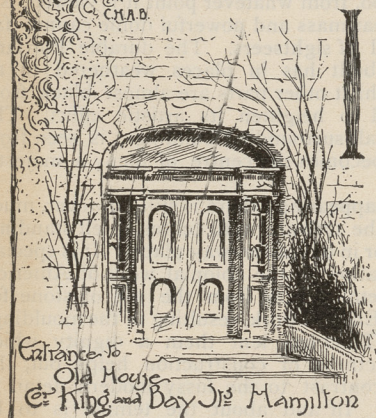 C.H.A.B.
Entrance to
Old House
Cor. King and Bay Sts Hamilton